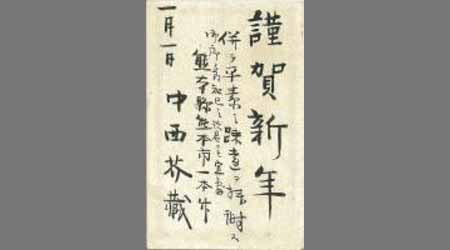 謹賀新年
併テ平素之疎遠ヲ拝謝ス
熊本縣熊本市一本竹
中西芥藏
一月一日